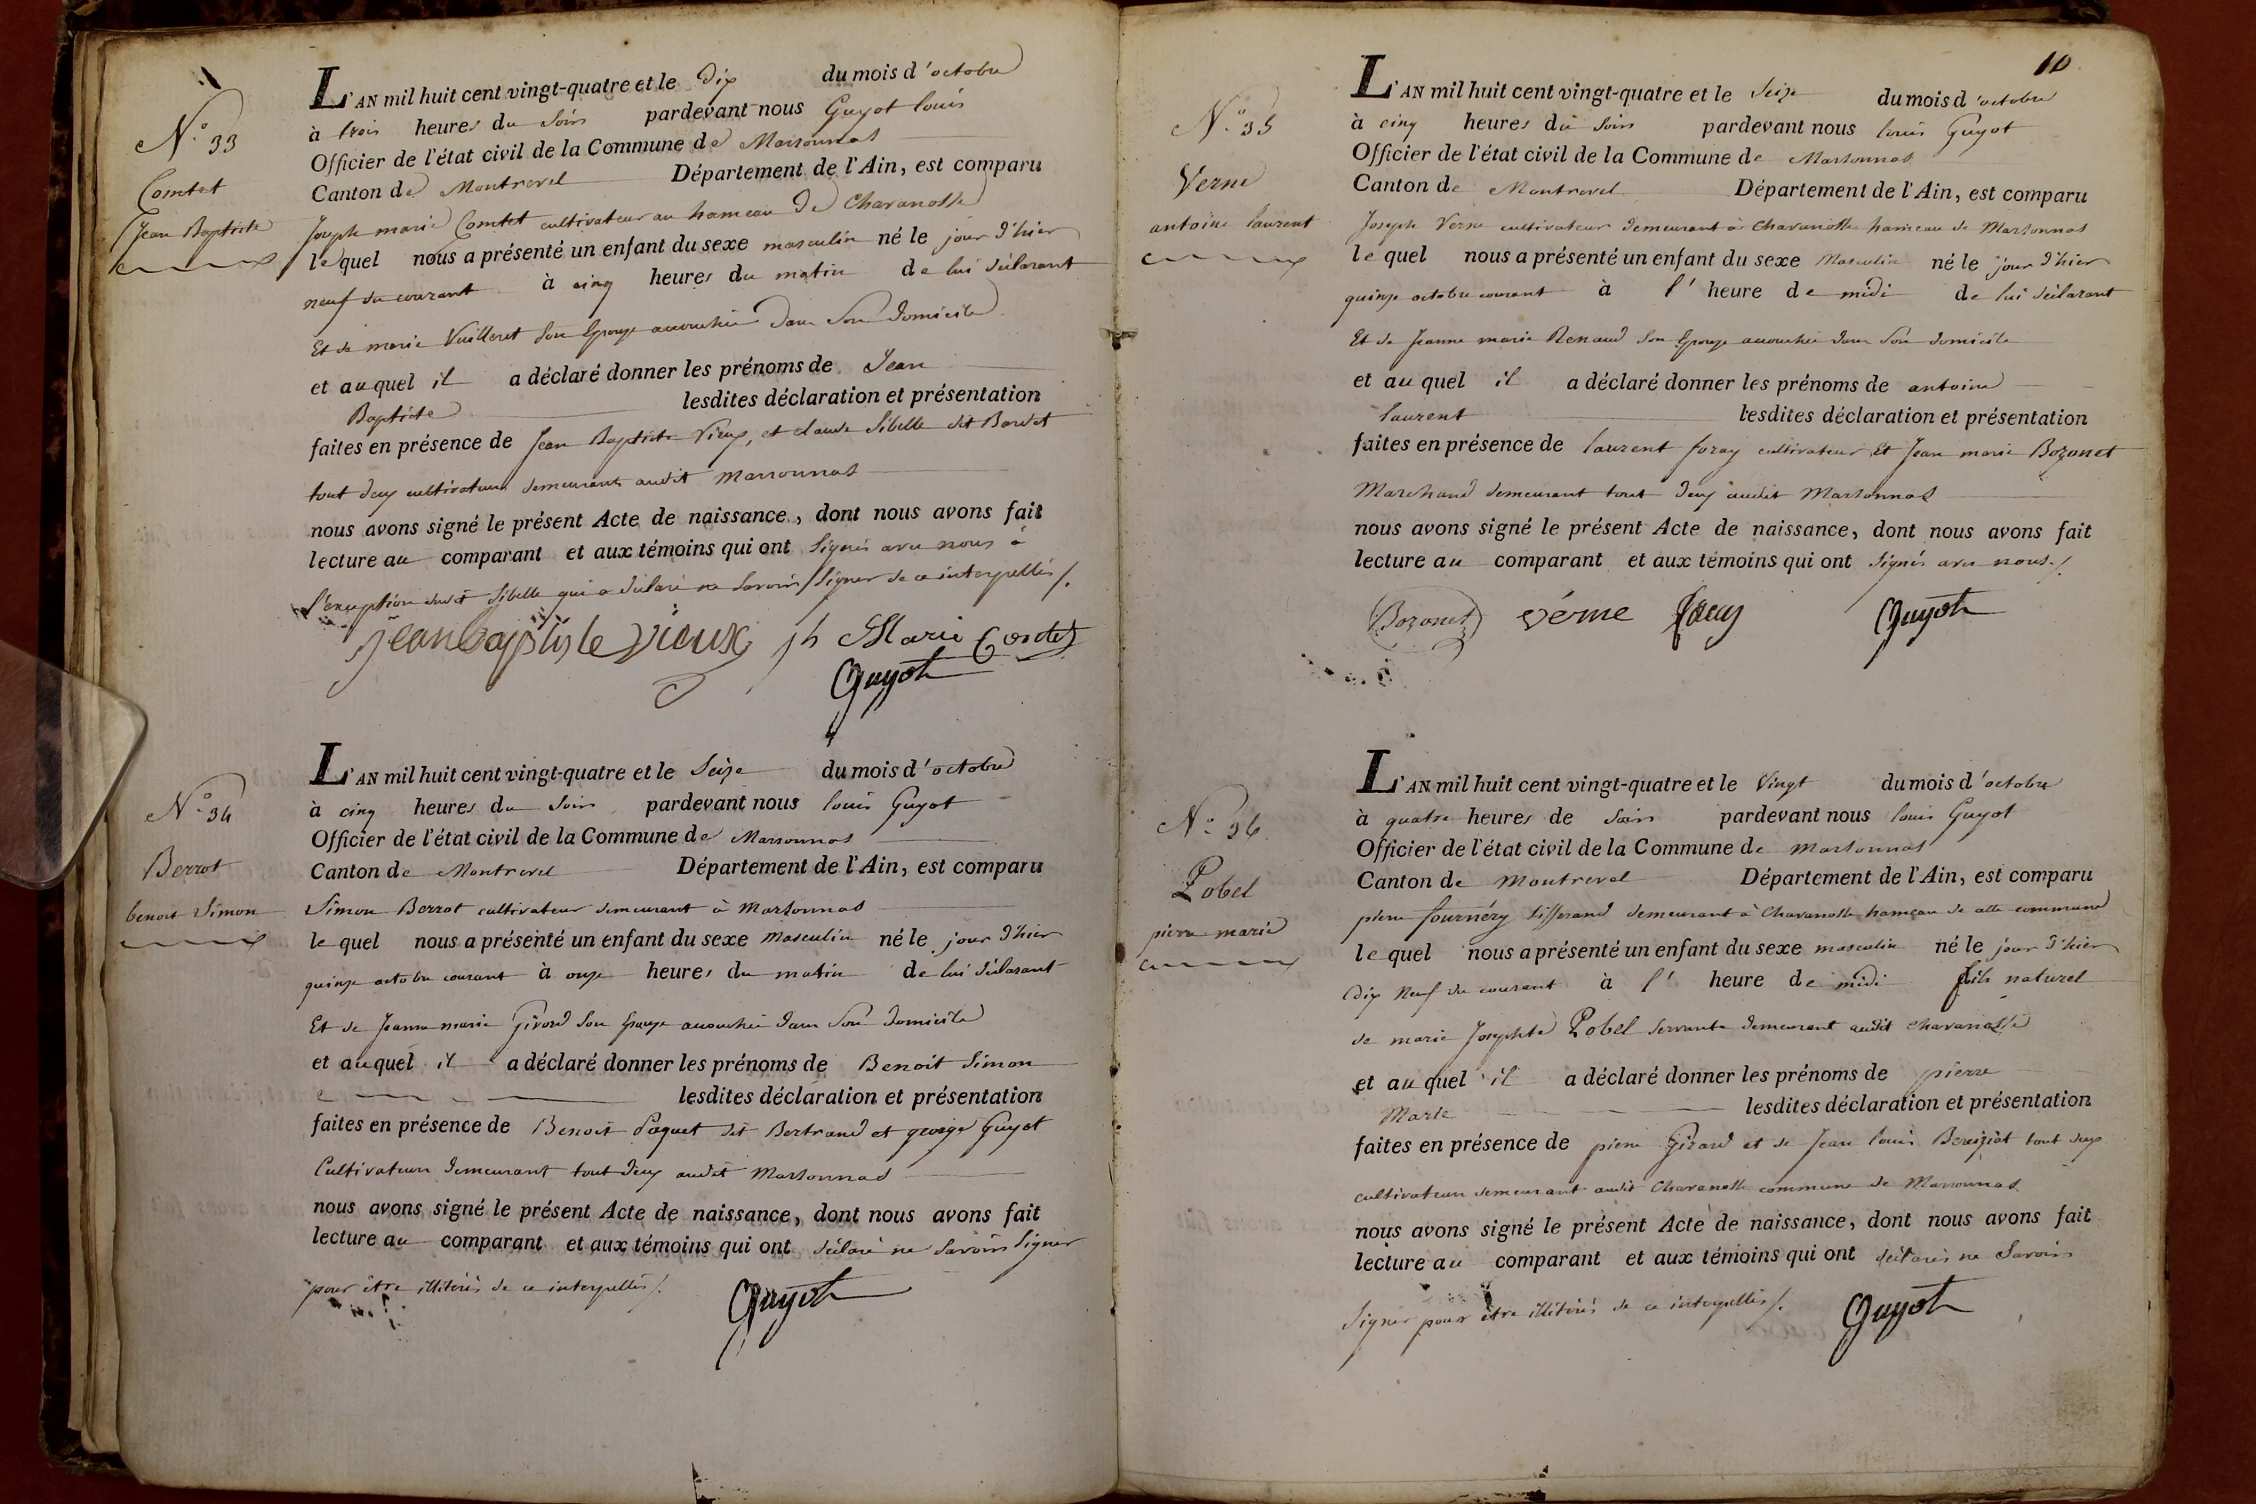 N.º 33
Comtet
Jean Baptiste
L'AN mil huit cent vingt-quatre et le dix du mois d'octobre
à trois heures du soir pardevant nous Guyot louis
Officier de l'état civil de la Commune de Marsonnas
Canton de Montrevel Département de l'Ain, est comparu
Joseph marie Comtet cultivateur au hameau de Chavanosse
lequel nous a présenté un enfant du sexe masculin né le jour d'hier
neuf du courant à cinq heures du matin de lui déclarant
Et de marie Vuilleret son Epouse accouchée dans son domicile
et auquel il a déclaré donner les prénoms de Jean
Baptiste lesdites déclaration et présentation
faites en présence de Jean Baptiste Vieux, et claude Sibelle dit Bardet
tout deux cultivateurs demeurants audit marsonnas
nous avons signé le présent Acte de naissance, dont nous avons fait
lecture au comparant et aux témoins qui ont signés avec nous à
l'exception dudit Sibelle qui a déclaré ne savoir signer de ce interpellés /.
jean baptiste vieux jh Marie Contet
Guyot
N.º 34
Berrot
benoit Simon
L'AN mil huit cent vingt-quatre et le Seize du mois d'octobre
à cinq heures du soir pardevant nous louis Guyot
Officier de l'état civil de la Commune de Marsonnas
Canton de Montrevel Département de l'Ain, est comparu
Simon Berrot cultivateur demeurant à Marsonnas
lequel nous a présenté un enfant du sexe masculin né le jour d'hier
quinze octobre courant à onze heures du matin de lui déclarant
Et de Jeanne marie Girord son Epouse accouchée dans son domicile
et auquel il a déclaré donner les prénoms de Benoit Simon
lesdites déclaration et présentation
faites en présence de Benoit Paquet dit Bertrand et george Guyot
Cultivateurs demeurant tout deux audit Marsonnas
nous avons signé le présent Acte de naissance, dont nous avons fait
lecture au comparant et aux témoins qui ont déclaré ne savoir signer
pour être illitérés de ce interpellés /.
Guyot
10
N.º 35
Verne
antoine laurent
L'AN mil huit cent vingt-quatre et le Seize du mois d'octobre
à cinq heures du soir pardevant nous louis Guyot
Officier de l'état civil de la Commune de Marsonnas
Canton de Montrevel Département de l'Ain, est comparu
Joseph Verne cultivateur demeurant à Chavanosse hameau de Marsonnas
lequel nous a présenté un enfant du sexe Masculin né le jour d'hier
quinze octobre courant à l'heure de midi de lui déclarant
Et de Jeanne marie Renaud son Epouse accouchée dans son domicile
et auquel il a déclaré donner les prénoms de antoine
laurent lesdites déclaration et présentation
faites en présence de laurent foray cultivateur, Et Jean marie Bozonet
Marchand demeurant tout deux audit Marsonnas
nous avons signé le présent Acte de naissance, dont nous avons fait
lecture au comparant et aux témoins qui ont signés avec nous. /.
Bozonet vérne foray Guyot
N.º 36
Pobel
pierre marie
L'AN mil huit cent vingt-quatre et le Vingt du mois d'octobre
à quatre heures de soir pardevant nous louis Guyot
Officier de l'état civil de la Commune de marsonnas
Canton de Montrevel Département de l'Ain, est comparu
pierre fournéry tisserand demeurant à Chavanosse hameau de cette commune
lequel nous a présenté un enfant du sexe masculin né le jour d'hier
dix neuf du courant à l'heure de midi fils naturel
de marie Josephte Pobel servante demeurant audit chavanosse
et auquel il a déclaré donner les prénoms de pierre
Marie lesdites déclaration et présentation
faites en présence de pierre Girard et de Jean louis tout deux
cultivateurs demeurant audit Chavanosse commune de Marsonnas
nous avons signé le présent Acte de naissance, dont nous avons fait
lecture au comparant et aux témoins qui ont déclarés ne savoir
signer pour être illitérés de ce interpellés /.
Guyot